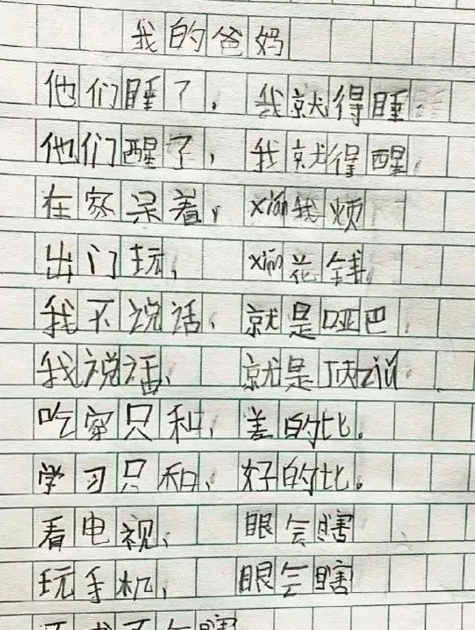 我的爸妈
他们睡了,我就得睡
他们醒了,我就得醒
在家呆着,xián我烦
出门玩,xián花钱
我不说话,就是哑巴
我说话,就是顶zuǐ
吃穿只和,差的比。
学习只和,好的比。
看电视,眼会瞎
玩手机,眼会瞎